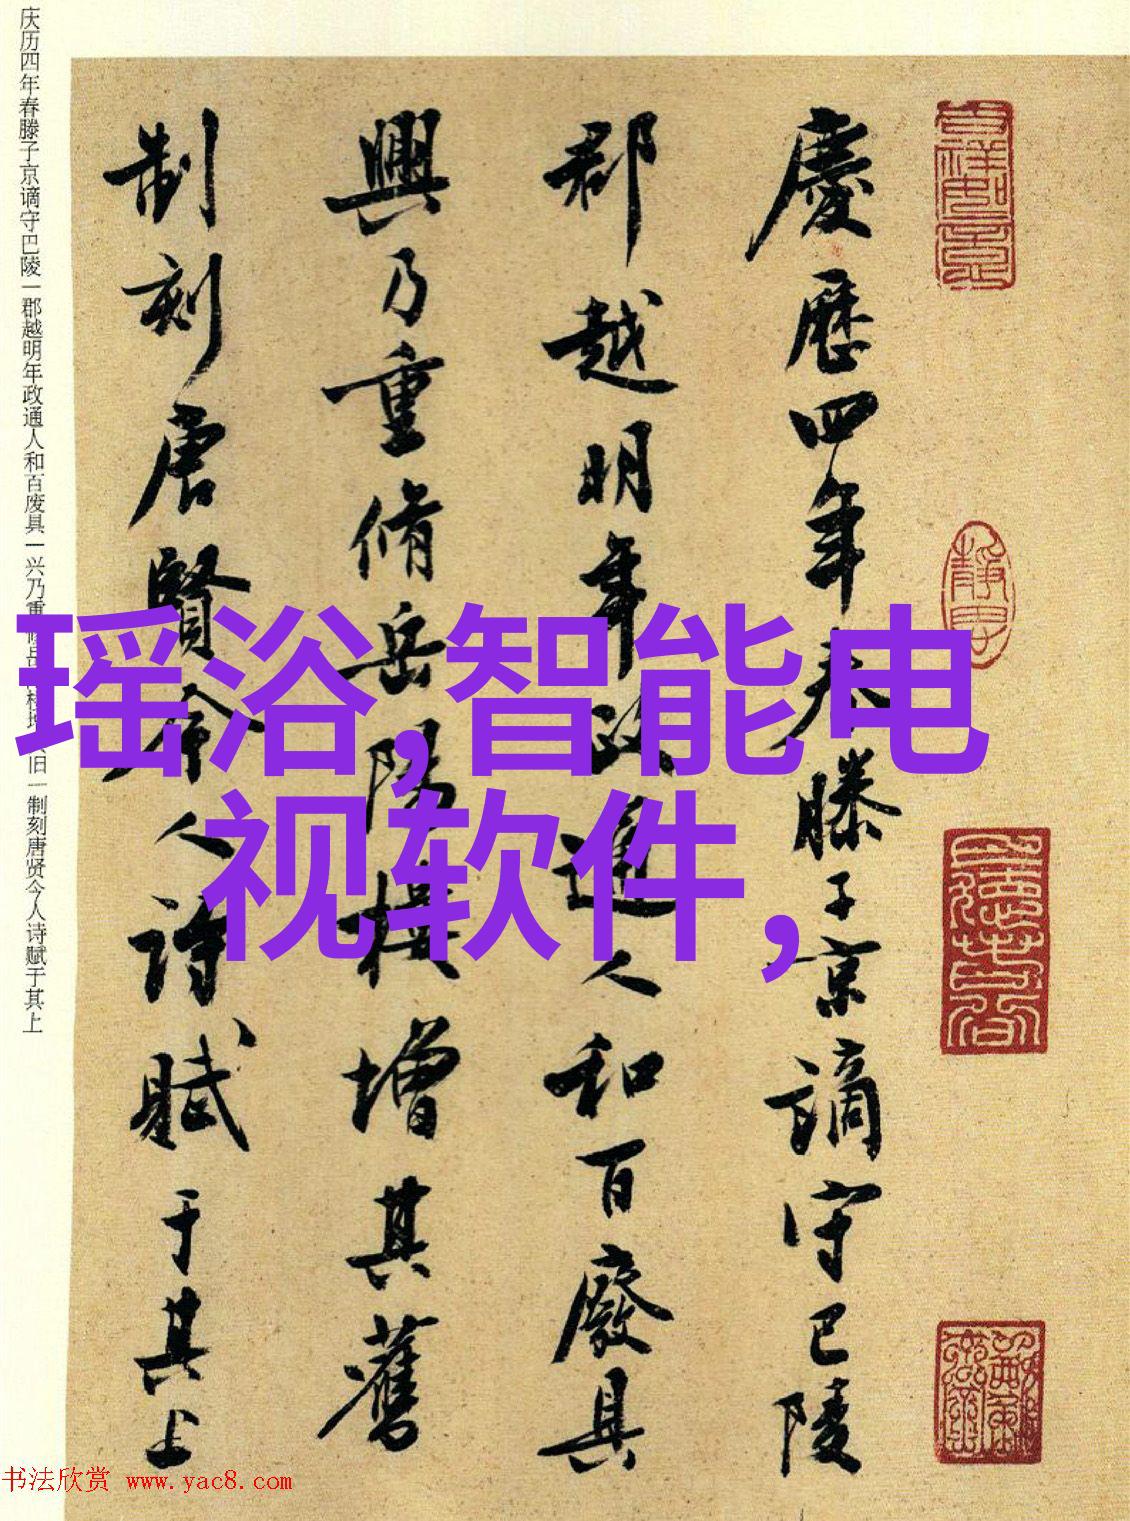 慶歷四年春滕子京謫守巴陵
郡越明年政通人和百廢具
興乃重脩岳陽樓增其舊
制刻唐賢今人詩賦于其上
庆历四年春滕子京谪守巴陵一郡越明年政通人和百废具一兴乃重修岳楼增旧一制刻唐贤今人诗赋于其上
瑶浴,智能电
视软件,
书法欣赏 www.yac8.com